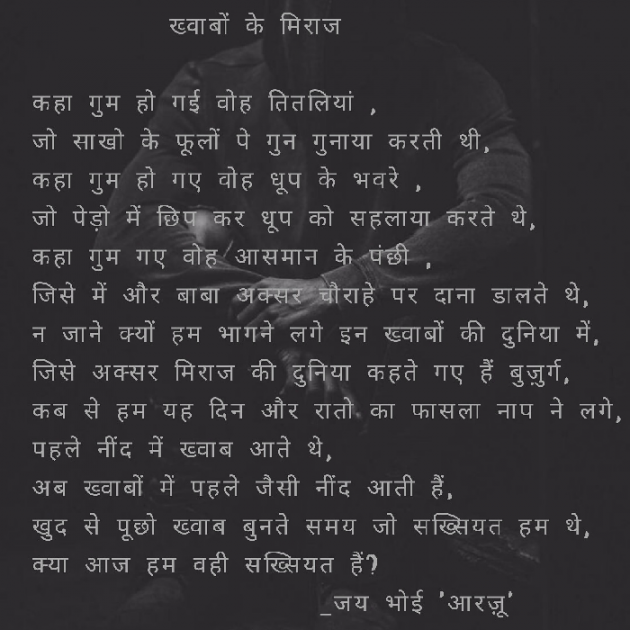 ख्वाबों के मिराज
कहा गुम हो गई वोह तितलियां ,
जो साखो के फूलों पे गुन गुनाया करती थी,
कहा गुम हो गए वोह धूप के भवरे ,
जो पेड़ो में छिप कर धूप को सहलाया करते थे,
कहा गुम गए वोह आसमान के पंछी ,
जिसे में और बाबा अक्सर चौराहे पर दाना डालते थे,
न जाने क्यों हम भागने लगे इन ख्वाबों की दुनिया में,
जिसे अक्सर मिराज की दुनिया कहते गए हैं बुज़ुर्ग,
कब से हम यह दिन और रातो का फासला नाप ने लगे,
पहले नींद में ख्वाब आते थे,
अब ख्वाबों में पहले जैसी नींद आती हैं,
खुद से पूछो ख्वाब बुनते समय जो सख्सियत हम थे,
क्या आज हम वही सख्सियत हैं?
_जय भोई 'आरज़ू'